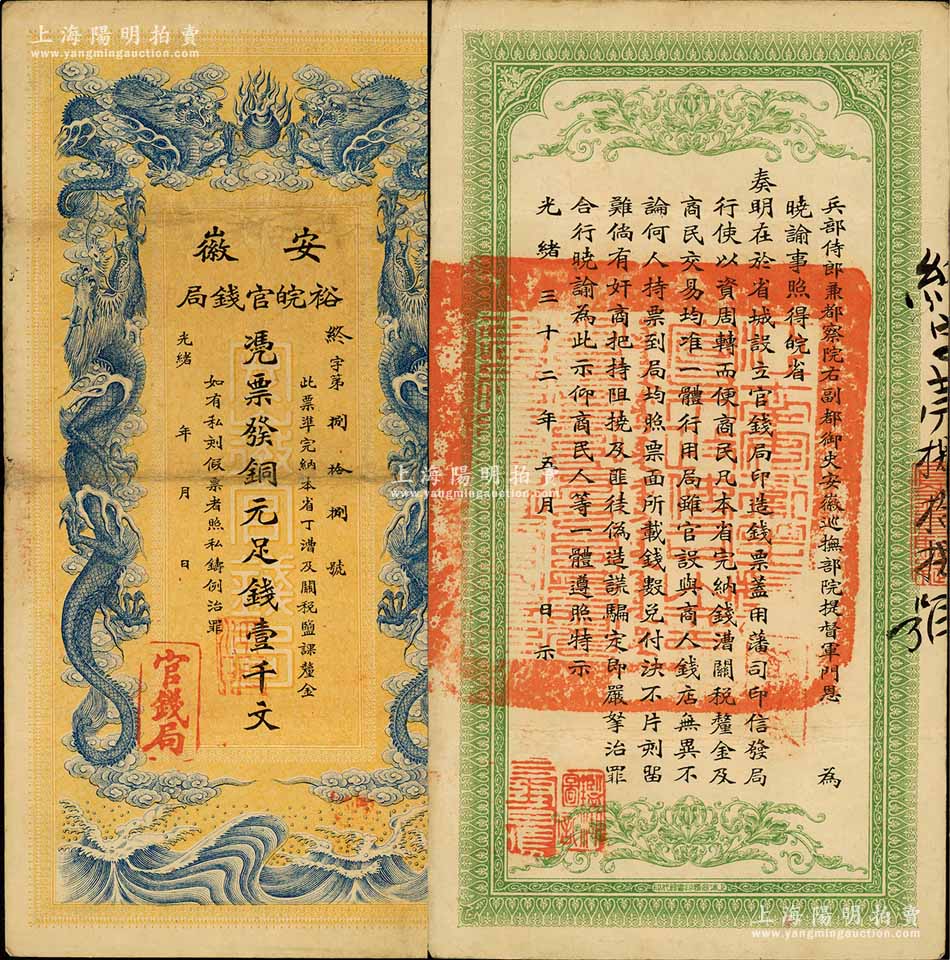 上海陽明拍賣
www.yangmingauction.com
安徽
裕皖官錢局
終字第捌拾捌號
此票準完納本省丁漕及關稅鹽課釐金
憑票發銅元足錢壹千文
如有私刻假票者照私鑄例治罪
光緒 年 月 日
官錢局
兵部侍郎兼都察院右副都御史安徽巡撫部院提督軍門恩 為
曉諭事照得皖省
奏明在於省城設立官錢局印造錢票蓋用藩司印信發局
行使以資周轉而便商民凡本省完納錢漕關稅釐金及
商民交易均准一體行用局雖官設與商人錢店無異不
論何人持票到局均照票面所載錢數兌付決不片刻留
難倘有奸商把持阻撓及匪徒偽造謊騙定即嚴拏治罪
合行曉諭為此示仰商民人等一體遵照特示
光緒三十二年五月 日示
上海陽明拍賣
www.yangmingauction.com
上海陽明拍賣
www.yangmingauction.com